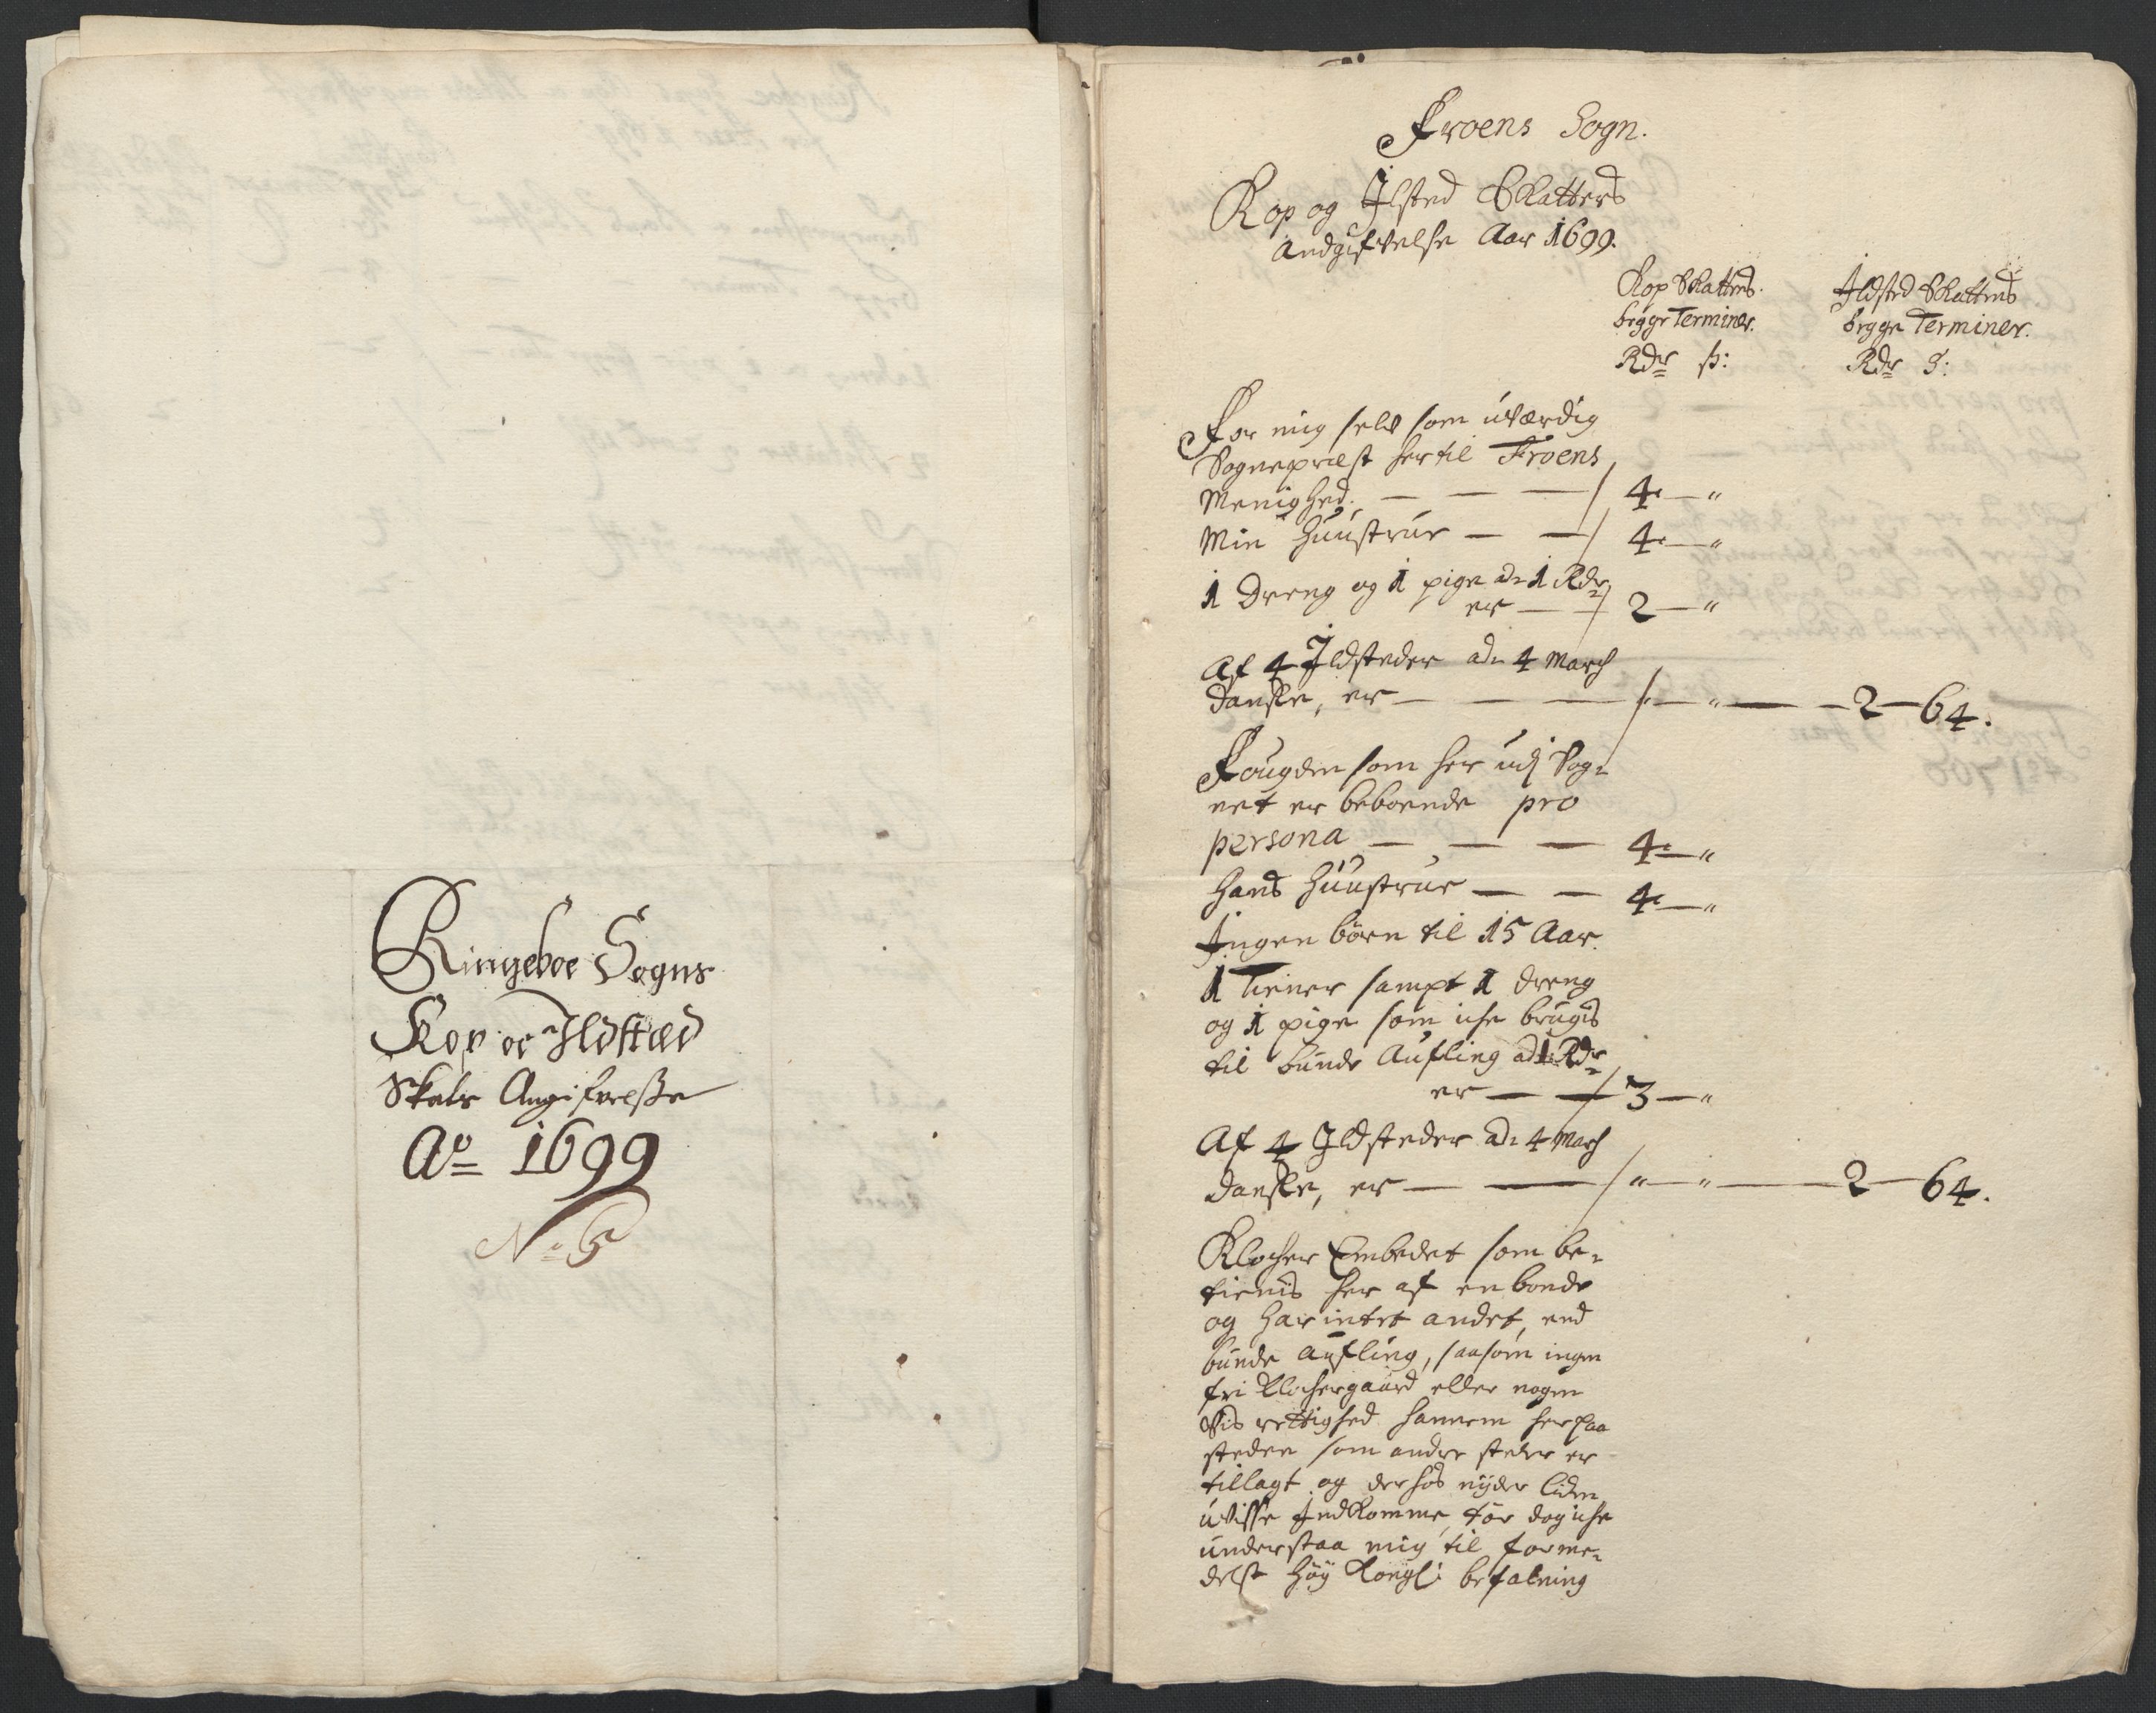 Ringeboe Sogns
Kop oc Ildsted
Skats Angifvelsse
Ao 1699
No 5
Froens Sogn.
Kop og Ilsted Skatters
andgifvelse Aar 1699.
Kop Skattens
begge Terminer.
Rdr ß:
Ildsted Skattens
begge Terminer.
Rdr S:
For mig selv som uværdig
Sogneprest her til Froens
Menighed, — — — / 4 — "
Min Huustrue — — / 4 — "
1 Dreng og 1 pige ad 1 Rdr
er — / 2 — "
Af 4 Ildsteder ad 4 March
danske, er — — — / " — " — — 2 — 64.
Fougden som her udj Sog-
net er beboende pro
persona — — — 4 — "
Hans Huustrue — — 4 — "
Ingen børn til 15 Aar.
1 Tiener sampt 1 dreng
og 1 pige som iche brugis
til bunde Aufling ad 1 Rdr
er — / 3 — "
Af 4 Ildsteder ad 4 March
danske, er — — / " — " — — 2 — 64.
Klocher Embedet som be-
tienis her af en bonde
og har intet andet, end
bunde aufling, saasom ingen
fri Klochergaard eller nogen
vis rettighed hannem her paa
steden som andre steder er
tillagt og der hos nyder liden
uvisse Indkomme, tør dog iche
understaa mig til forme-
delst høy Kongl: befalning